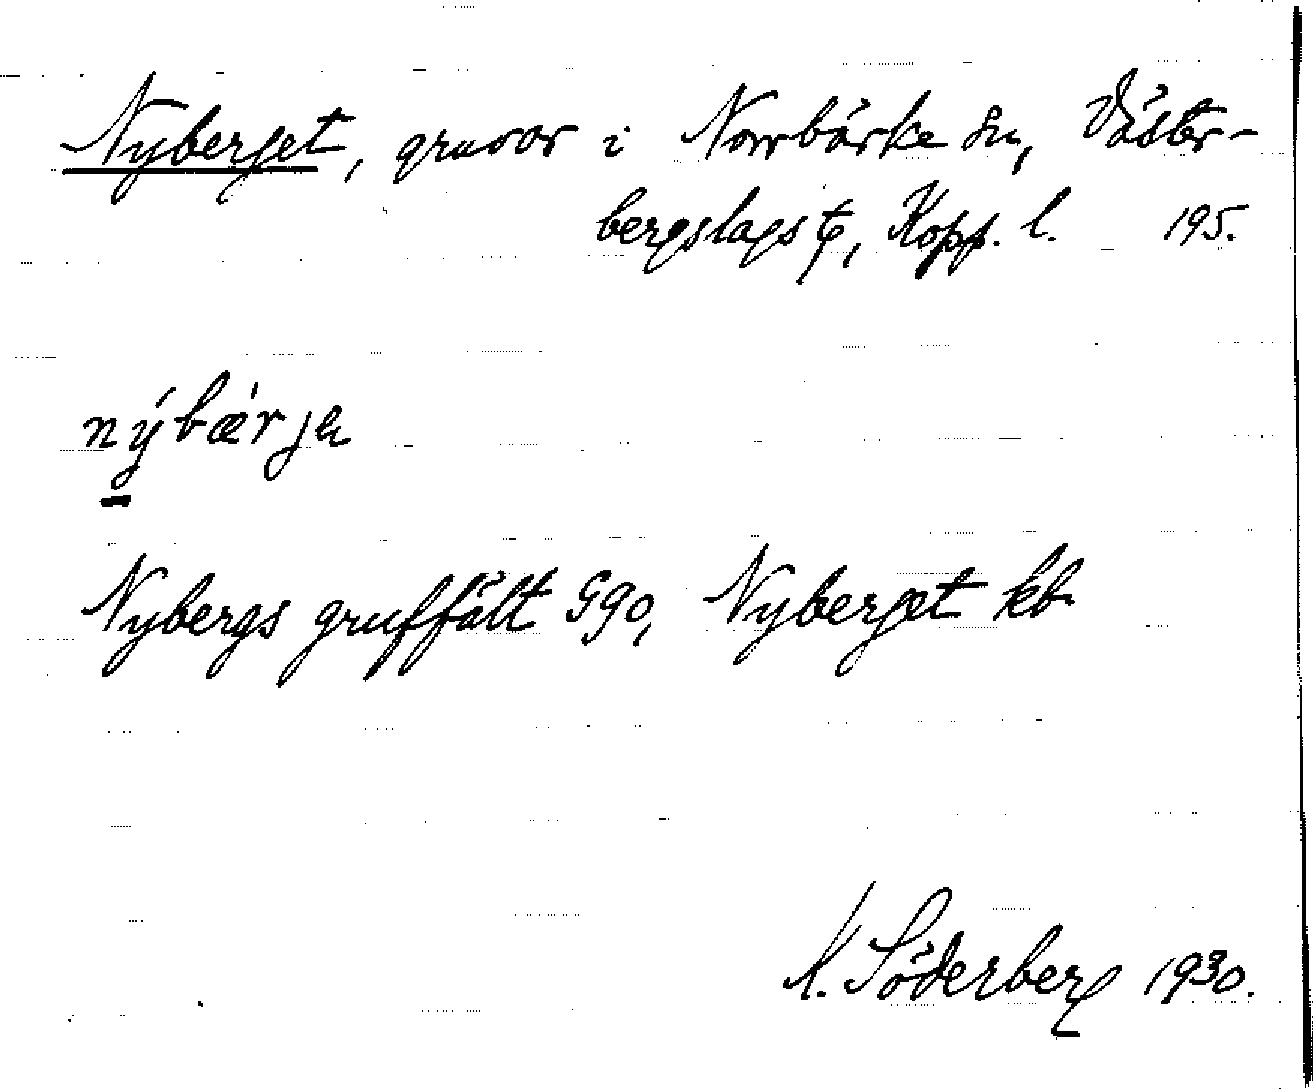 Nyberget, gruvor i Norrbärke sn, Väster-
bergslags , Kopp. l. 195.
nýbǽrja
Nybergs gruffält G90, Nyberget kb
K. Söderberg 1930.